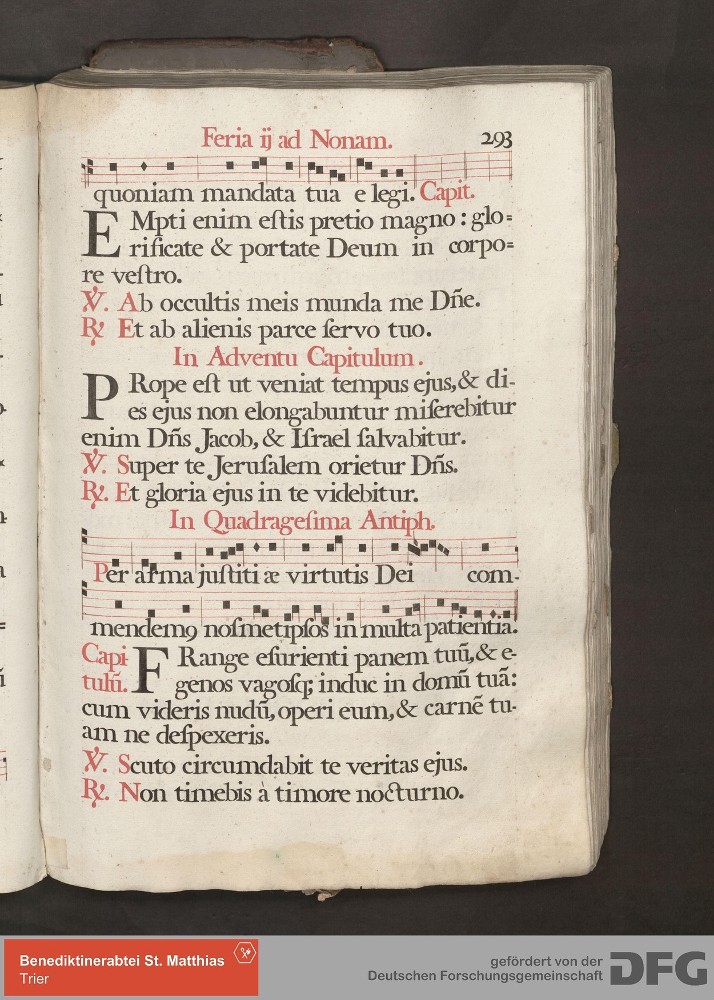 Feria ij ad Nonam. 293
quoniam mandata tua e legi. Capit.
E Mpti enim eſtis pretio magno : glo=
rificate & portate Deum in corpo=
re veſtro.
℣. Ab occultis meis munda me Dñe.
℟. Et ab alienis parce ſervo tuo.
In Adventu Capitulum.
P Rope eſt ut veniat tempus ejus, & di-
es ejus non elongabuntur miſerebitur
enim Dñs Jacob, & Iſrael ſalvabitur.
℣. Super te Jeruſalem orietur Dñs.
℟. Et gloria ejus in te videbitur.
In Quadrageſima Antiph.
Per arma juſtitiæ virtutis Dei com-
mendemꝯ noſmetipſos in multa patientia.
Capi- F Range eſurienti panem tuũ, & e-
tulũ. genos vagoſqꝫ induc in domũ tuã:
cum videris nudũ, operi eum, & carnẽ tu-
am ne deſpexeris.
℣. Scuto circumdabit te veritas ejus.
℟. Non timebis à timore nocturno.
Benediktinerabtei St. Matthias
Trier
gefördert von der
Deutschen Forschungsgemeinschaft DFG